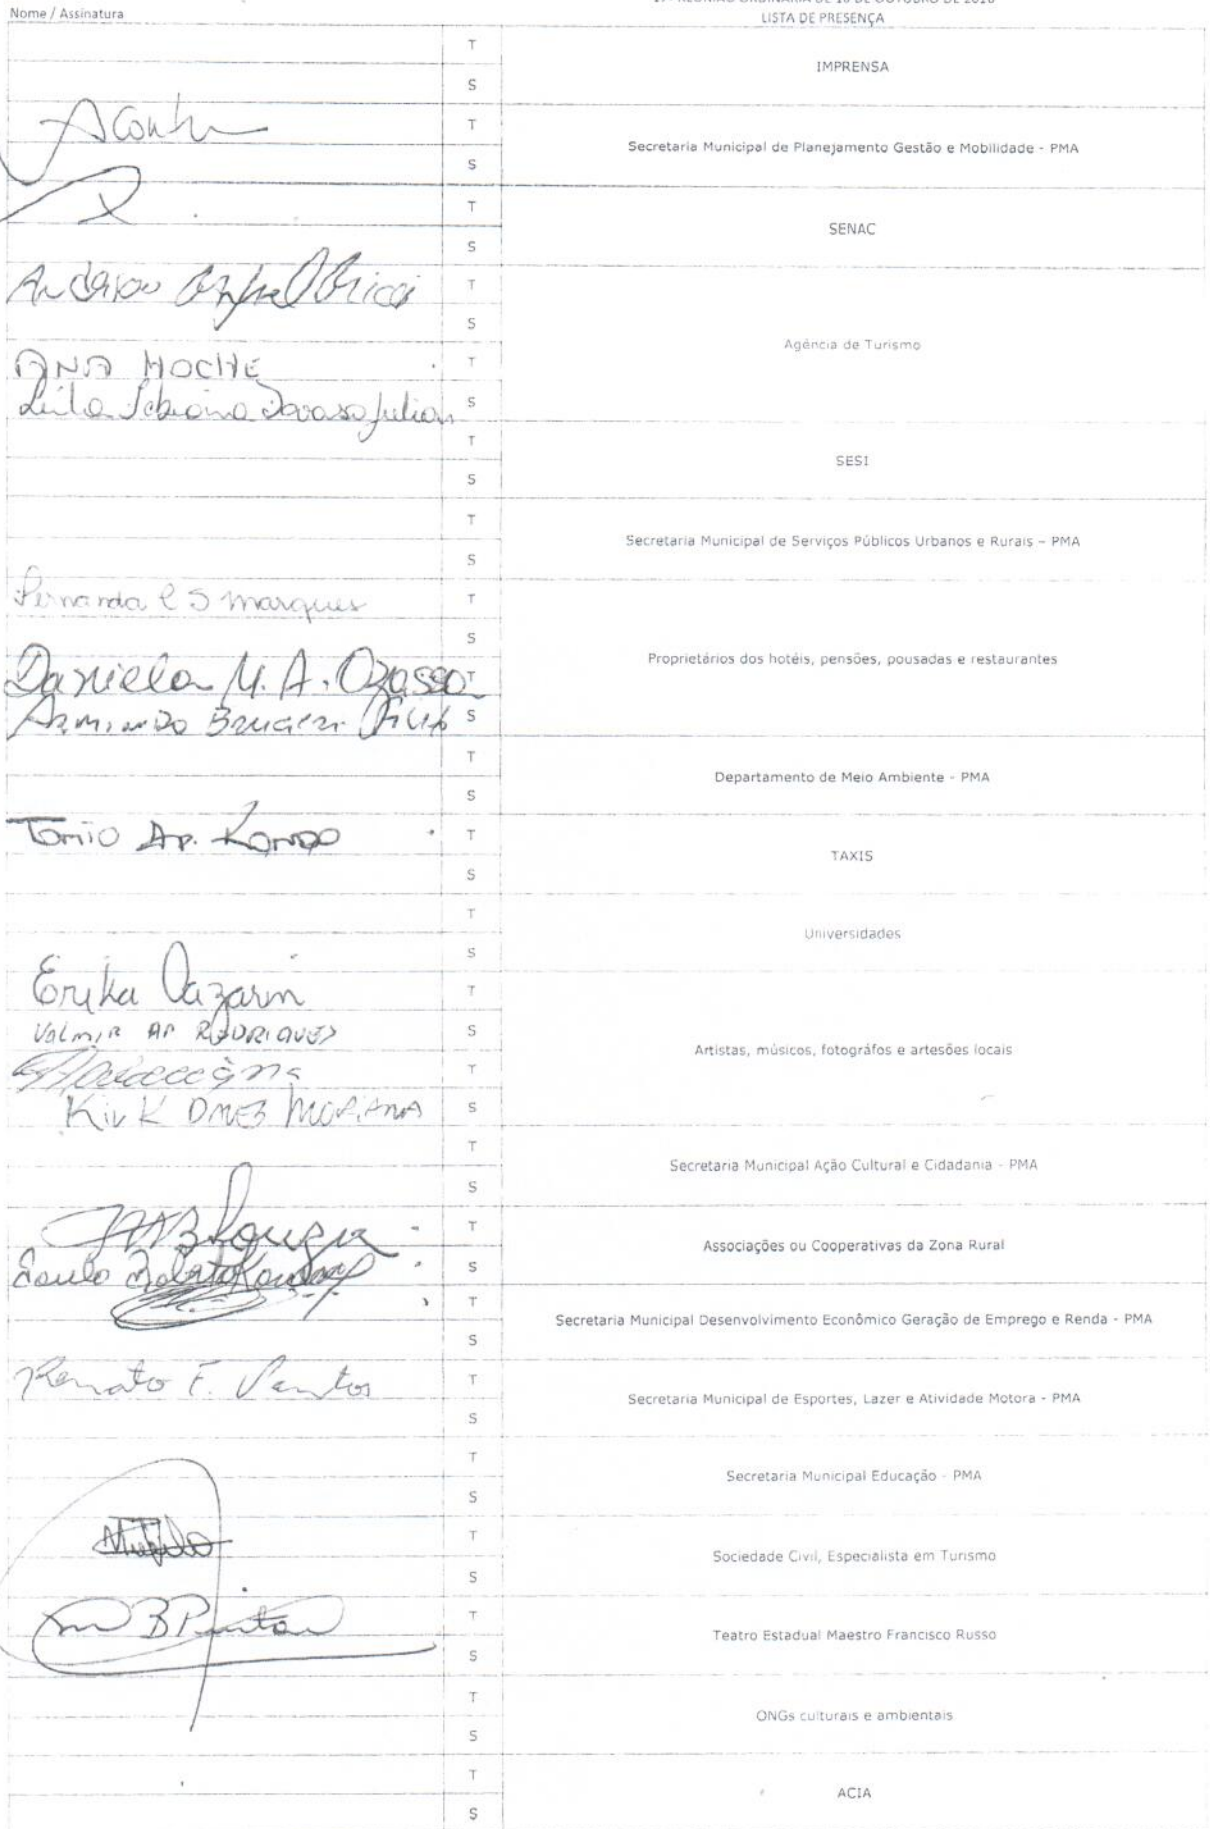 Nome / Assinatura
LISTA DE PRESENÇA
T
IMPRENSA
S
T
Secretaria Municipal de Planejamento Gestão e Mobilidade - PMA
S
T
SENAC
S
T
S
Agência de Turismo
ANA HOCHE
T
Leila
S
T
SESI
S
T
Secretaria Municipal de Serviços Públicos Urbanos e Rurais – PMA
S
Fernanda C S Marques
T
S
Proprietários dos hotéis, pensões, pousadas e restaurantes
Daniela M. A. Ozassa
T
Armando Brugeri Filho
S
T
Departamento de Meio Ambiente - PMA
S
Tomio Ap. Kondo
T
TAXIS
S
T
Universidades
S
Erika Vazarin
T
Valmir AP RODRIGUES
S
Artistas, músicos, fotográfos e artesões locais
T
S
T
Secretaria Municipal Ação Cultural e Cidadania - PMA
S
T
Associações ou Cooperativas da Zona Rural
Paulo Roberto
S
T
Secretaria Municipal Desenvolvimento Econômico Geração de Emprego e Renda - PMA
S
Renato F. Santos
T
Secretaria Municipal de Esportes, Lazer e Atividade Motora - PMA
S
T
Secretaria Municipal Educação - PMA
S
T
Sociedade Civil, Especialista em Turismo
S
T
Teatro Estadual Maestro Francisco Russo
S
T
ONGs culturais e ambientais
S
T
ACIA
S